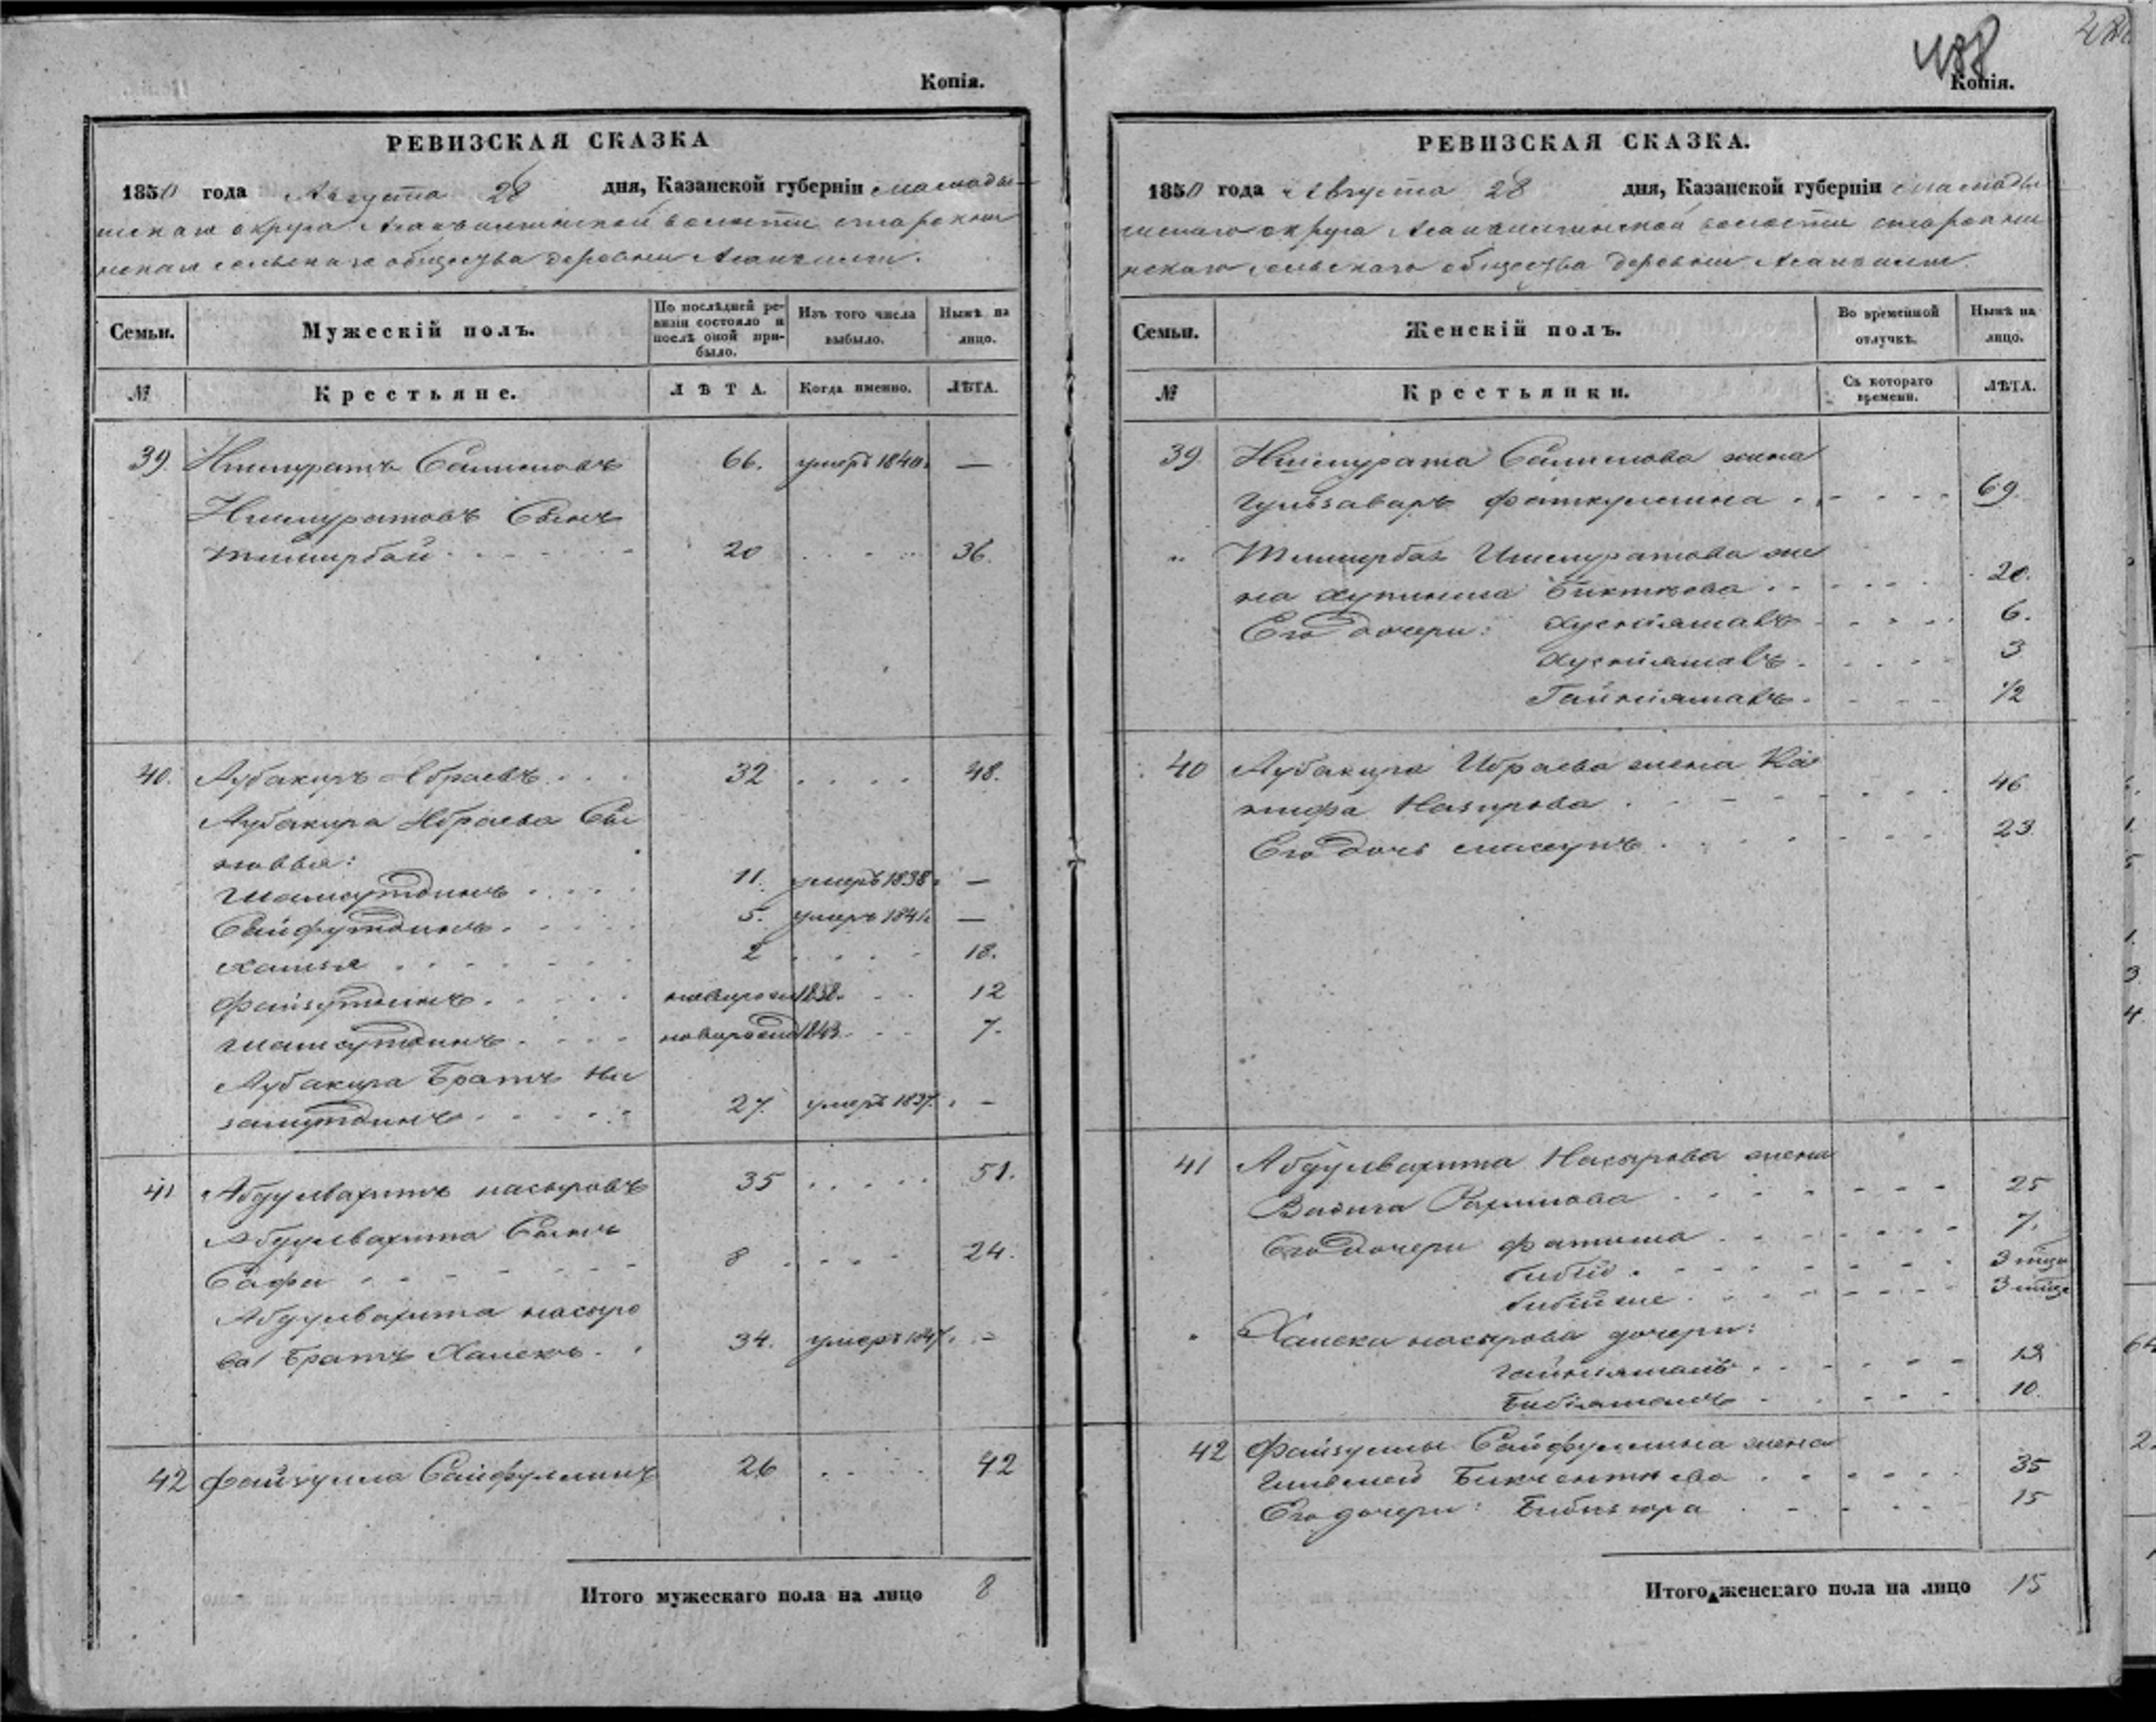 Копія.
РЕВИЗСКАЯ СКАЗКА
1850 года Августа 28 дня, Казанской губерніи мамады
шскаго округа волости старокил
сельскаго общества деревни
Семьи.
Мужескій полъ.
По послѣдней ре-
визіи состояло и
послѣ оной при-
было.
Изъ того числа
выбыло.
Нынѣ на
лицо.
№
Крестьяне.
ЛѢТА.
Когда именно.
ЛѢТА.
39 Ишмуратъ 66. умеръ 1840. —
Ишмуратовъ Сынъ
Тимирбай 20 36.
40. Аубакиръ Ибраевъ 32 48.
Аубакира Ибраева Сы
новья:
шамсутдинъ 11. умеръ 1838. —
Сайфутдинъ 5. умеръ 1841. —
2 18.
Файзутдинъ новорожд 1838. 12
шамсутдинъ новорожд 1843. 7.
Аубакира Братъ Ни
замутдинъ 27. умеръ 1837. —
41 Абдулвахитъ насыровъ 35 51.
Абдулвахита Сынъ
Сафи 8 24.
Абдулвахита насыро
ва Братъ Халекъ 34. умеръ 1847. —
42 Файзулла Сайфуллинъ 26 42
Итого мужескаго пола на лицо 8
488
Копія.
РЕВИЗСКАЯ СКАЗКА.
1850 года Августа 28 дня, Казанской губерніи мамады
шскаго округа волости
сельскаго общества деревни
Семьи.
Женскій полъ.
Во временной
отлучкѣ.
Нынѣ на
лицо.
№
Крестьянки.
Съ котораго
времени.
ЛѢТА.
39 Ишмурата жена
Гульзаваръ Фаткуллина 69.
" Тимирбая Ишмуратова же
на 20.
Его дочери: Хуснiямалъ 6.
Хуснiямалъ 3
Гайнiямалъ 1/2
40 Аубакира Ибраева жена Ха
нифа Назирова 46
Его дочь 23
41 Абдулвахита Насырова жена
25
Его дочери Фатима 7.
3 мѣся
3 мѣся
" Халека насырова дочери:
Гайнiямалъ 13
Бибiямалъ 10.
42 Файзуллы Сайфуллина жена
35
Его дочери: 15
Итого женскаго пола на лицо 15